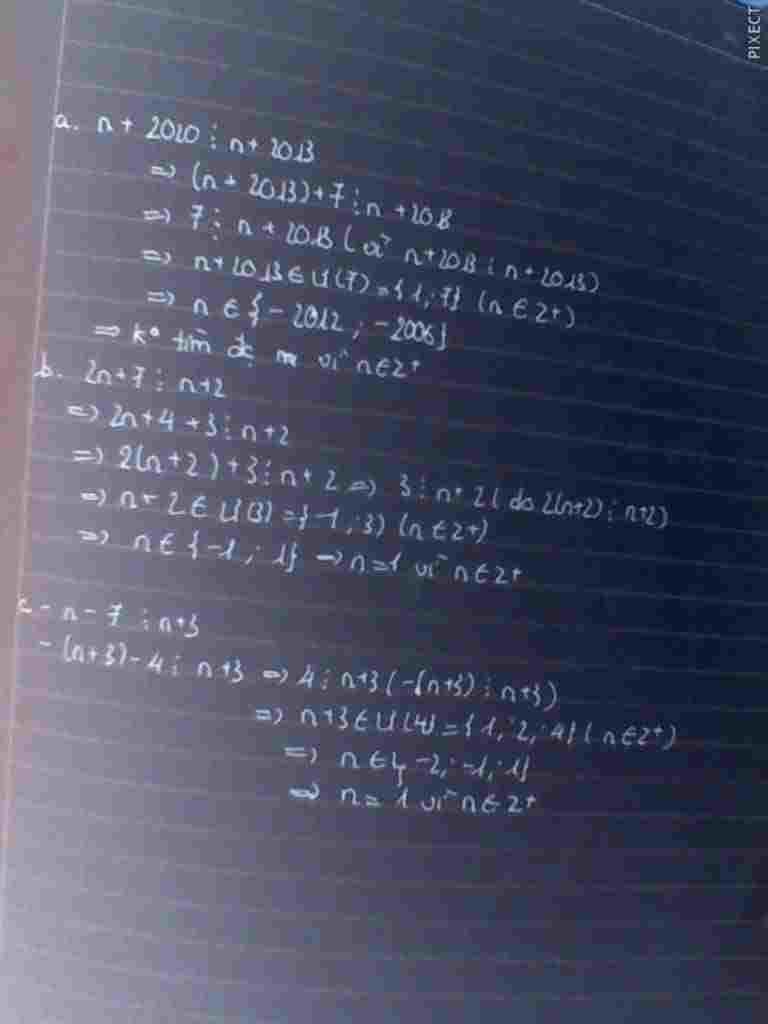 PIXECT
a. n + 2020 ⋮ n + 2013
=> (n + 2013) + 7 ⋮ n + 2013
=> 7 ⋮ n + 2013 (vì n + 2013 ⋮ n + 2013)
=> n + 2013 ∈ Ư(7) = {1; 7} (n ∈ Z+)
=> n ∈ {-2012; -2006}
=> ko tìm đc n vì n ∈ Z+
b. 2n + 7 ⋮ n + 2
=> 2n + 4 + 3 ⋮ n + 2
=> 2(n + 2) + 3 ⋮ n + 2 => 3 ⋮ n + 2 (do 2(n+2) ⋮ n+2)
=> n + 2 ∈ Ư(3) = {1; 3} (n ∈ Z+)
=> n ∈ {-1; 1} => n = 1 vì n ∈ Z+
c - n - 7 ⋮ n + 3
-(n+3) - 4 ⋮ n + 3 => 4 ⋮ n+3 (-(n+3) ⋮ n+3)
=> n+3 ∈ Ư(4) = {1; 2; 4} (n ∈ Z+)
=> n ∈ {-2; -1; 1}
=> n = 1 vì n ∈ Z+